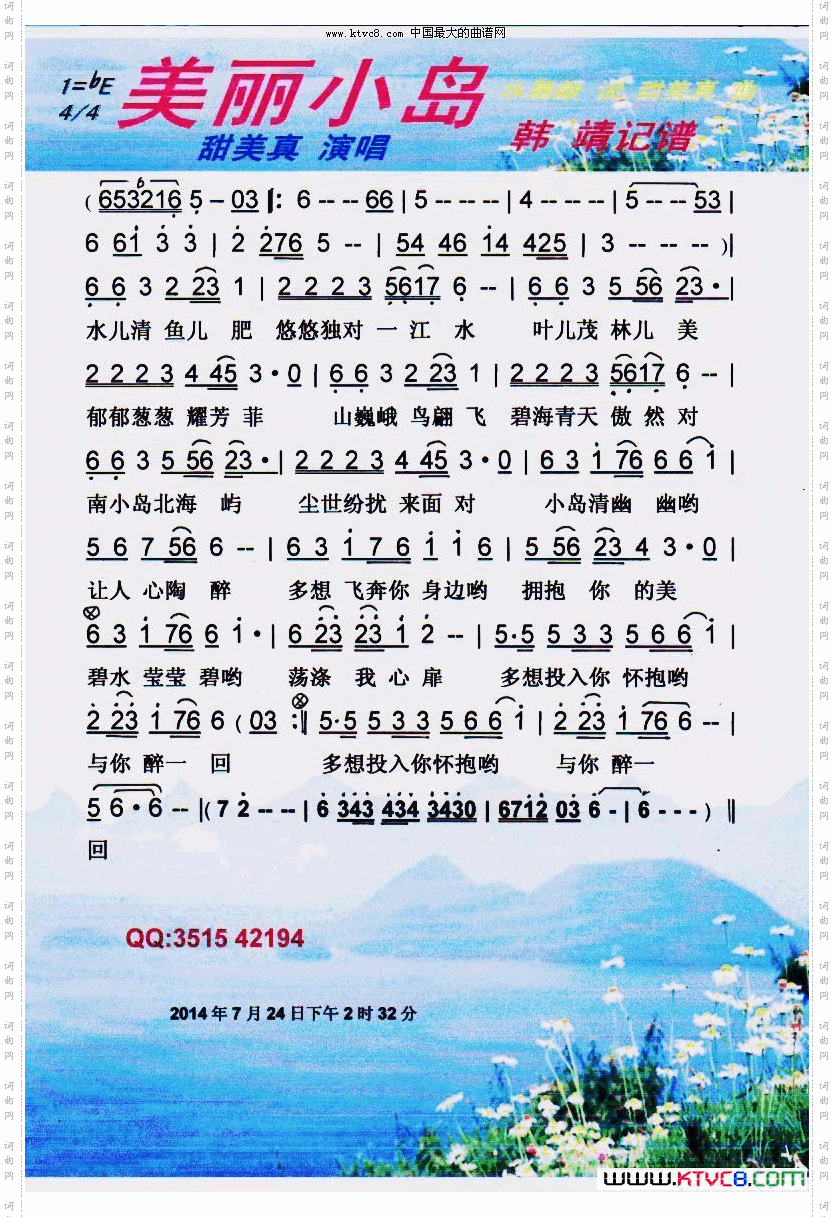 www.ktvc8.com 中国最大的曲谱网
1=bE
4/4
美丽小岛
词 甜美真 曲
甜美真 演唱
韩 靖记谱
6
(653216 5 – 03 ‖: 6 -- -- 66 | 5 -- -- -- | 4 -- -- -- | 5 -- -- 53 |
6 61 3 3 | 2 276 5 -- | 54 46 14 425 | 3 -- -- -- )|
6 6 3 2 23 1 | 2 2 2 3 5617 6 -- | 6 6 3 5 56 23· |
水儿清 鱼儿 肥 悠悠独对 一 江 水 叶儿茂 林儿 美
2 2 2 3 4 45 3·0 | 6 6 3 2 23 1 | 2 2 2 3 5617 6 -- |
郁郁葱葱 耀芳 菲 山巍峨 鸟翩 飞 碧海青天 傲 然 对
6 6 3 5 56 23· | 2 2 2 3 4 45 3·0 | 6 3 1 76 6 6 1 |
南小岛北海 屿 尘世纷扰 来面 对 小岛清幽 幽哟
5 6 7 56 6 -- | 6 3 1 7 6 1 1 6 | 5 56 23 4 3·0 |
让人 心陶 醉 多想 飞奔你 身边哟 拥抱 你 的美
6 3 1 76 6 1· | 6 23 23 1 2 -- | 5·5 5 3 3 5 6 6 1 |
碧水 莹莹 碧哟 荡涤 我 心 扉 多想投入你 怀抱哟
2 23 1 76 6 ( 03 :‖ 5·5 5 3 3 5 6 6 1 | 2 23 1 76 6 -- |
与你 醉一 回 多想投入你怀抱哟 与你 醉一
5 6·6 -- |( 7 2 -- -- | 6 343 434 3430 | 6712 03 6 - | 6 - - - ) ‖
回
QQ:3515 42194
2014 年 7 月 24 日下午 2 时 32 分
www.KTVC8.com
词曲网